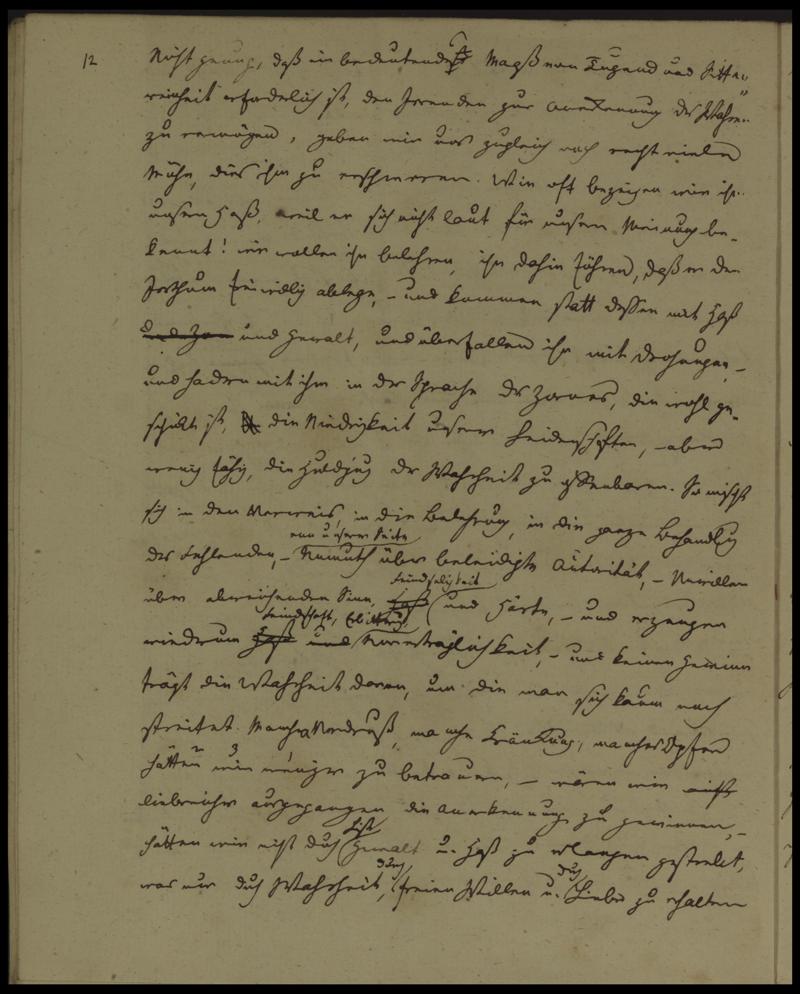 12
Nicht genug, daß ein bedeutendes Maaß von Tugend und Sitten-
reinheit erforderlich ist, den Irrenden zur Anerkennung des Wahren
zu vermögen, geben wir uns zugleich noch recht vielen
Mühe, dies ihm zu erschweren. Wie oft bezeigen wir ihm
unsern Haß, weil er sich nicht laut für unsern Meinung be-
kennt! wir wollen ihn belehren, ihn dahin führen, daß er den
Irrthum freiwillig ablege, – und kommen statt dessen mit Haß
und Zorn und Gewalt, und überfallen ihn mit Drohungen, –
und hadern mit ihm in der Sprache des Zornes, die wohl ge-
schickt ist, die Niedrigkeit unserer Leidenschaften, – aber
wenig fähig, die Huldigung der Wahrheit zu offenbaren. So mischt
sich in den Verweis, in die Belehrung, in die ganze Behandlung
von unserer Seite
des Fehlenden, – Unmuth über beleidigte Autorität, – Unwillen
Feindseligkeit
über abweichenden Sinn, Haß und Härte, – und erzeugen
Feindschaft, Erbitterung,
wiederum Haß und Unverträglichkeit, – und keinen Gewinn
trägt die Wahrheit davon, um die man sich kaum noch
streitet. Manchen Verdruß, manche Kränkung, manches Opfer
hätten wir weniger zu betrauern, – wären wir nicht
liebreicher ausgegangen die Anerkennung zu gewinnen, –
List
hätten wir nicht durch Gewalt u. Haß zu erlangen gestrebt,
durch durch
was nur durch Wahrheit, freien Willen u. Liebe zu erhalten